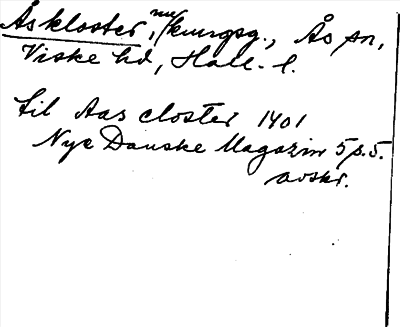 Åskloster, nu kungsg., Ås sn,
Viske hd, Hall. l.
til Aas closter 1401
Nye Danske Magazin 5 p. 5.
avskr.